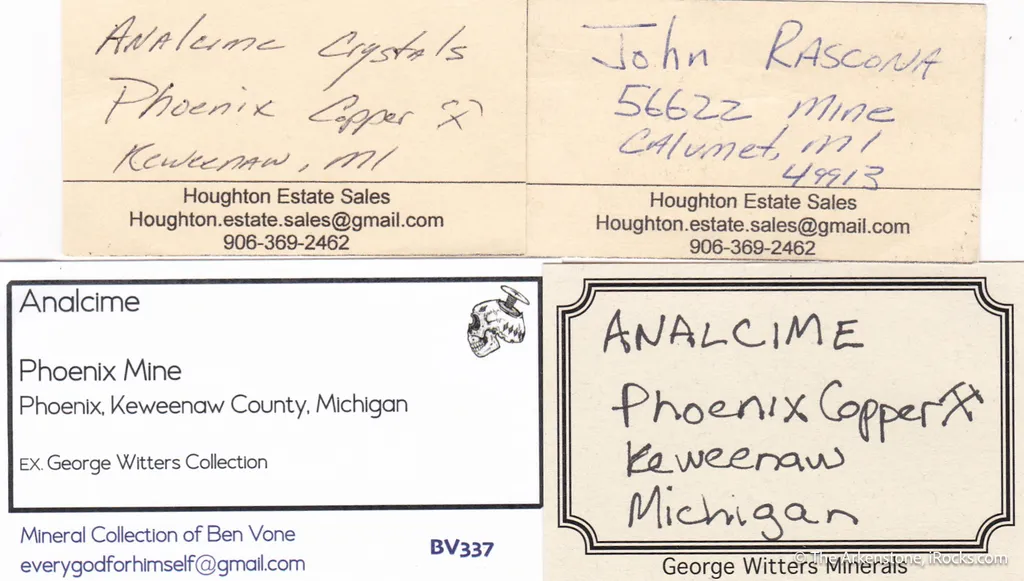 Analcime Crystals
Phoenix Copper ⚒
Keweenaw, MI
Houghton Estate Sales
Houghton.estate.sales@gmail.com
906-369-2462
John Rascona
56622 Mine
Calumet, MI
49913
Houghton Estate Sales
Houghton.estate.sales@gmail.com
906-369-2462
Analcime
Phoenix Mine
Phoenix, Keweenaw County, Michigan
EX. George Witters Collection
Mineral Collection of Ben Vone
everygodforhimself@gmail.com
BV337
ANALCIME
Phoenix Copper ⚒
Keweenaw
Michigan
George Witters Minerals
© The Arkenstone, iRocks.com